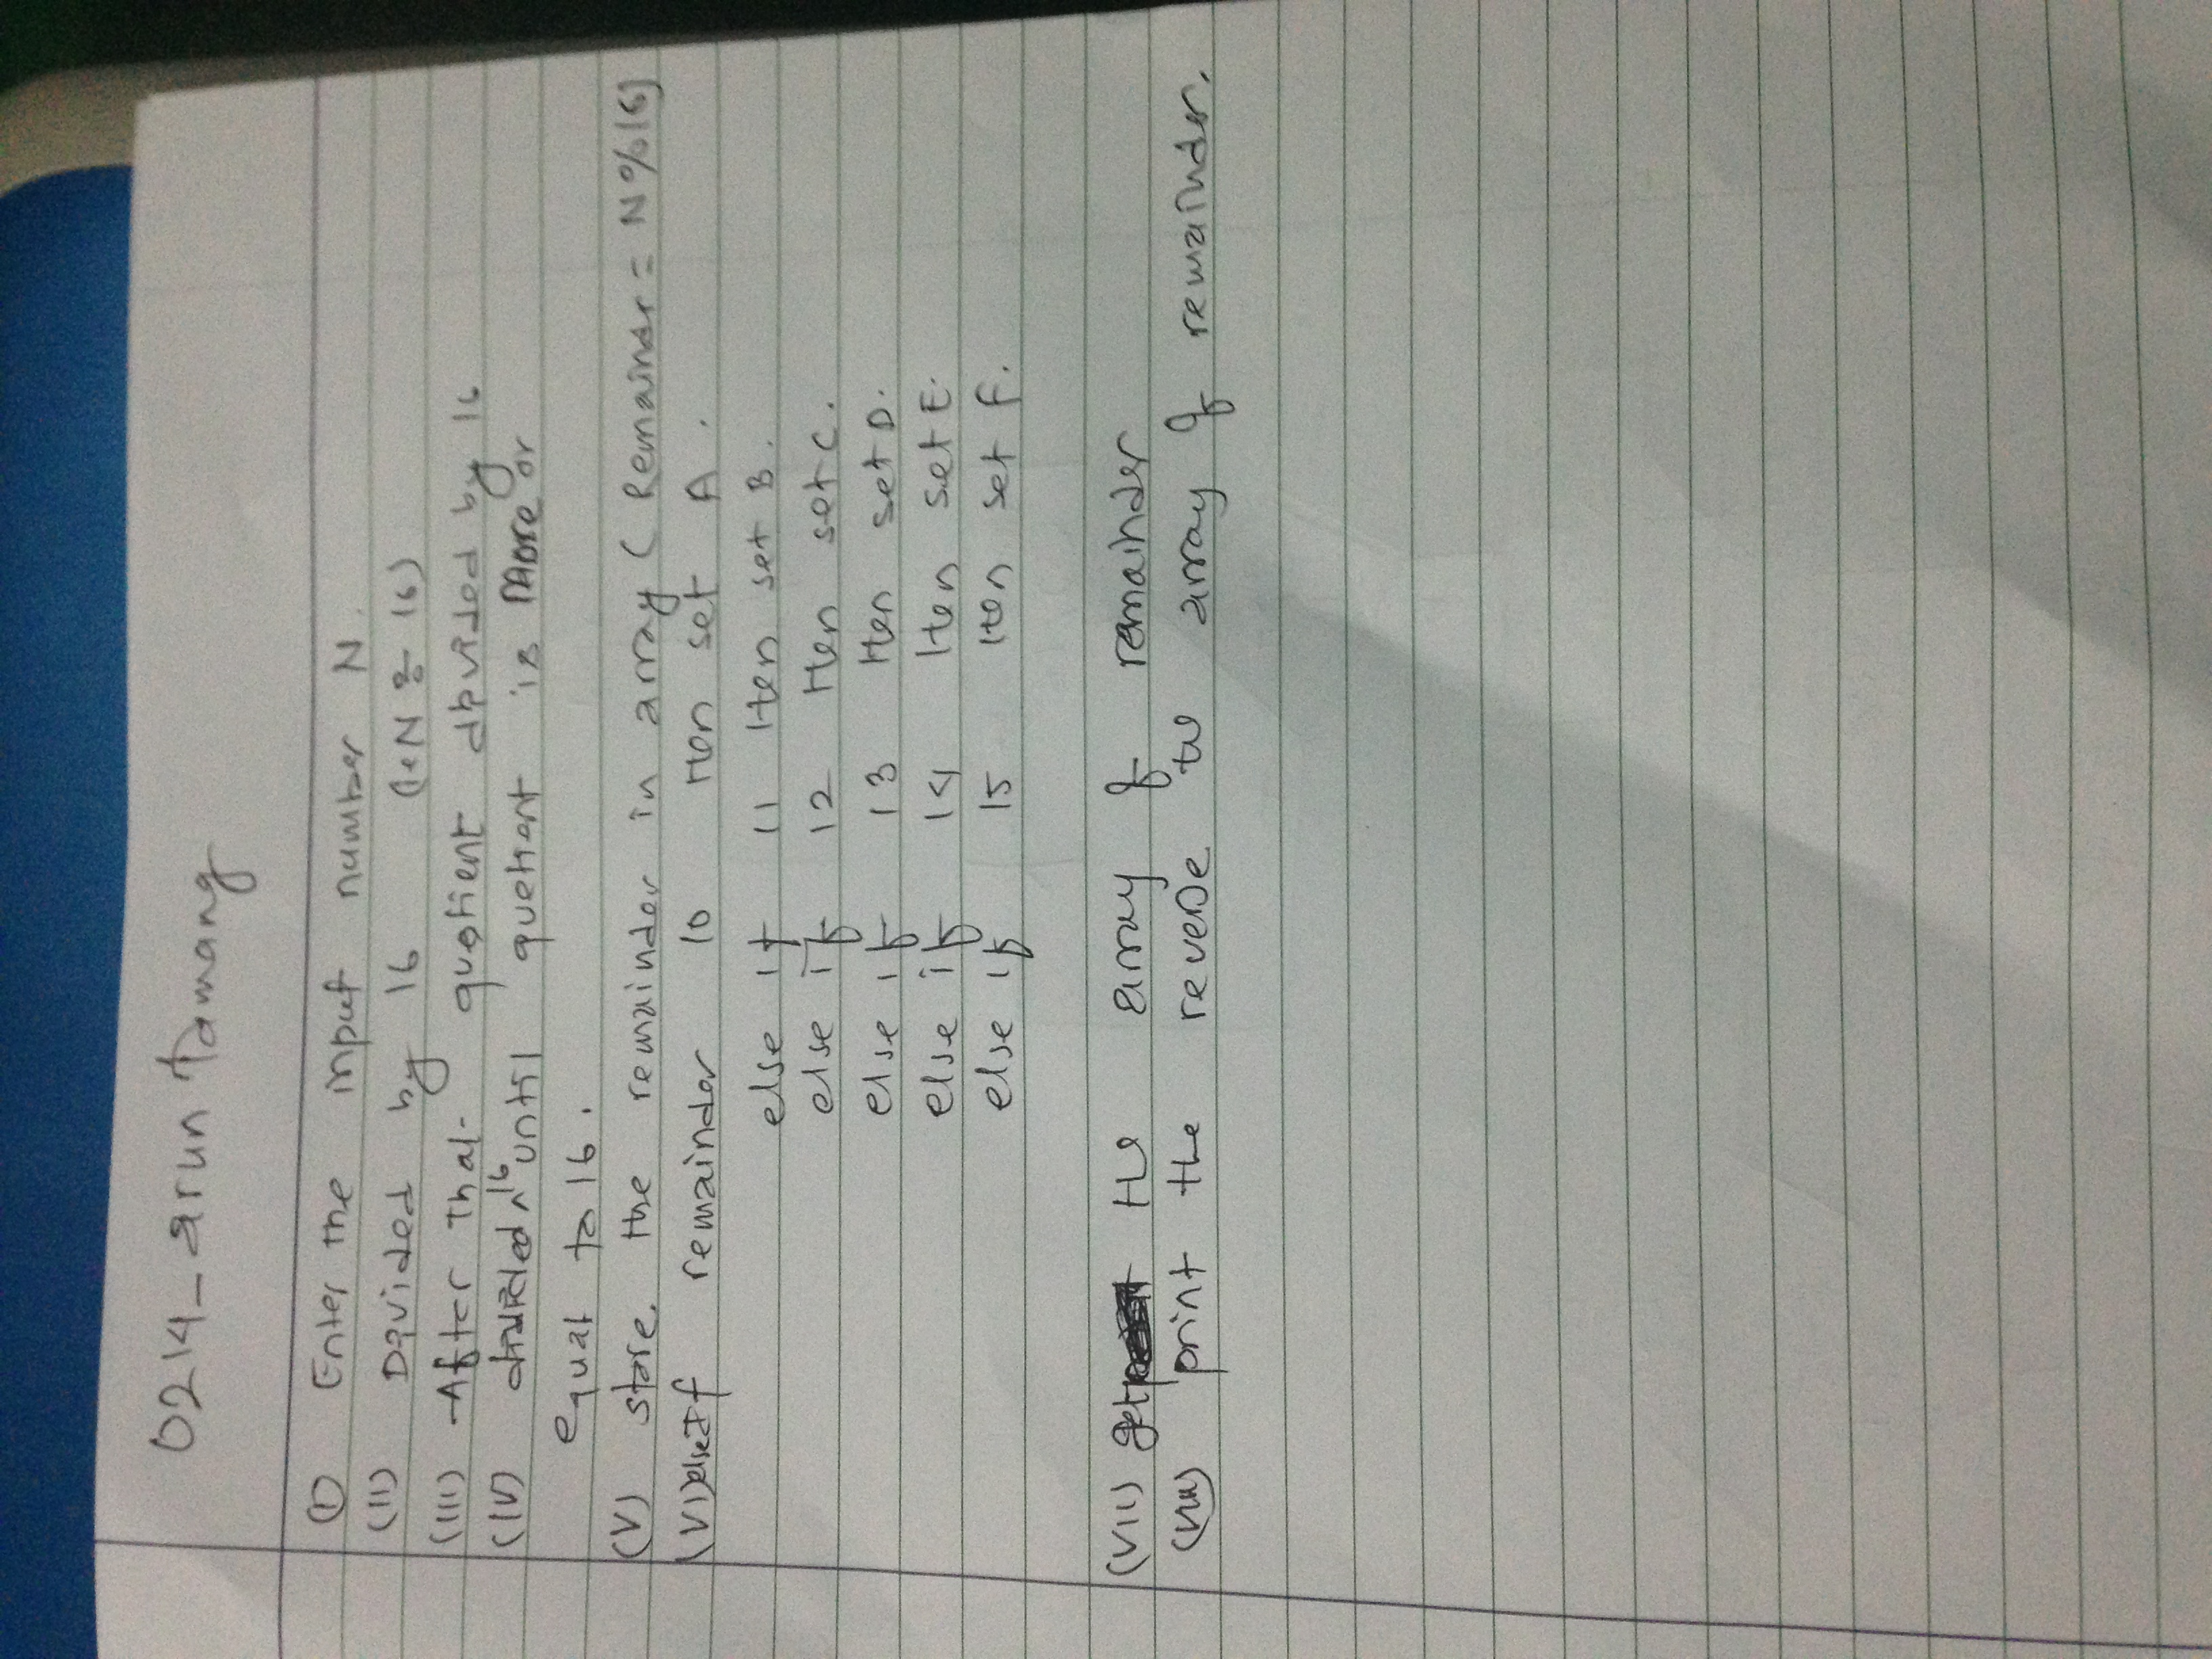 0214-arun Tamang
(I) Enter the input number N.
(II) Dividded by 16 (ie N ÷ 16)
(III) After that quotient dividded by 16
(IV) divided 16 until quetient is more or
equal to 16.
(V) store the remainder in array ( Remainder = N%16)
(VI) If remainder 10 then set A.
else if 11 then set B.
else if 12 then set C.
else if 13 then set D.
else if 14 then set E.
else if 15 then set F.
(VII) get the array of remainder
(VIII) print the reverse to array of remainder.